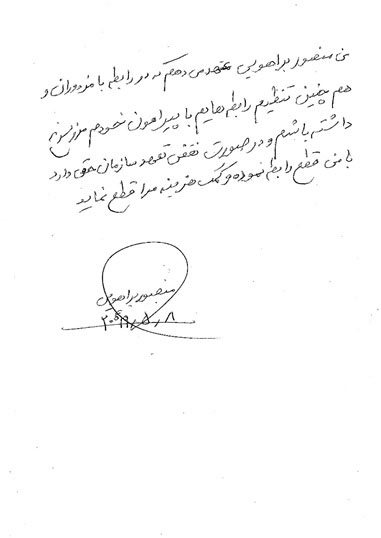 من منصور براهویی تعهد می دهم که در رابطه با مزدوران و
هم چنین تنظیم رابطه هایم با پیرامون خودم مرز سرخ
داشته باشم و در صورت نقض تعهد سازمان حق دارد
با من قطع رابطه نموده و کمک هزینه مرا قطع نماید
منصور براهویی
۲۰۱۹/۵/۸